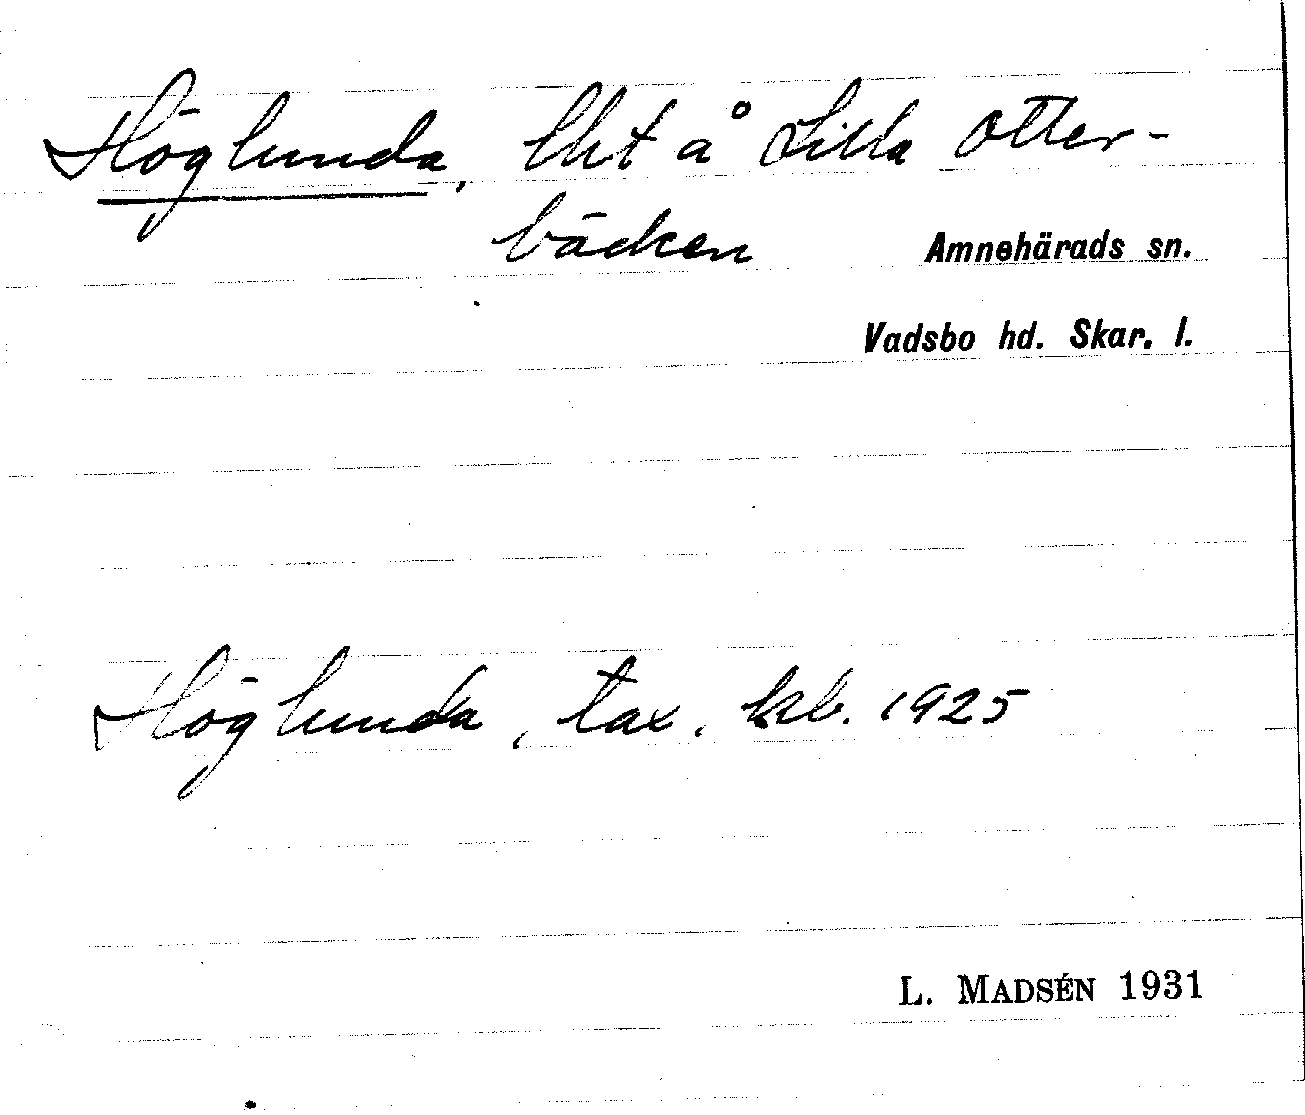 Höglunda, lht å Lilla Otter-
bäcken
Amnehärads sn.
Vadsbo hd. Skar. l.
Höglunda, tax. kb. 1925
L. MADSÉN 1931